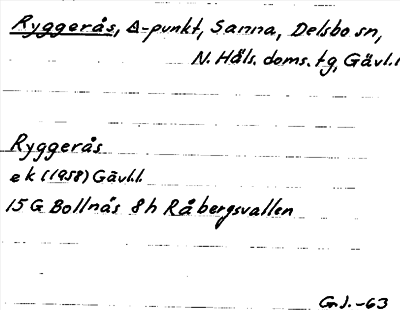 Ryggerås, Δ-punkt, Sanna, Delsbo sn,
N. Häls. doms. tg, Gävl.l
Ryggerås
ek (1958) Gävl.l.
15 G Bollnäs 8h Råbergsvallen
G.J. -63